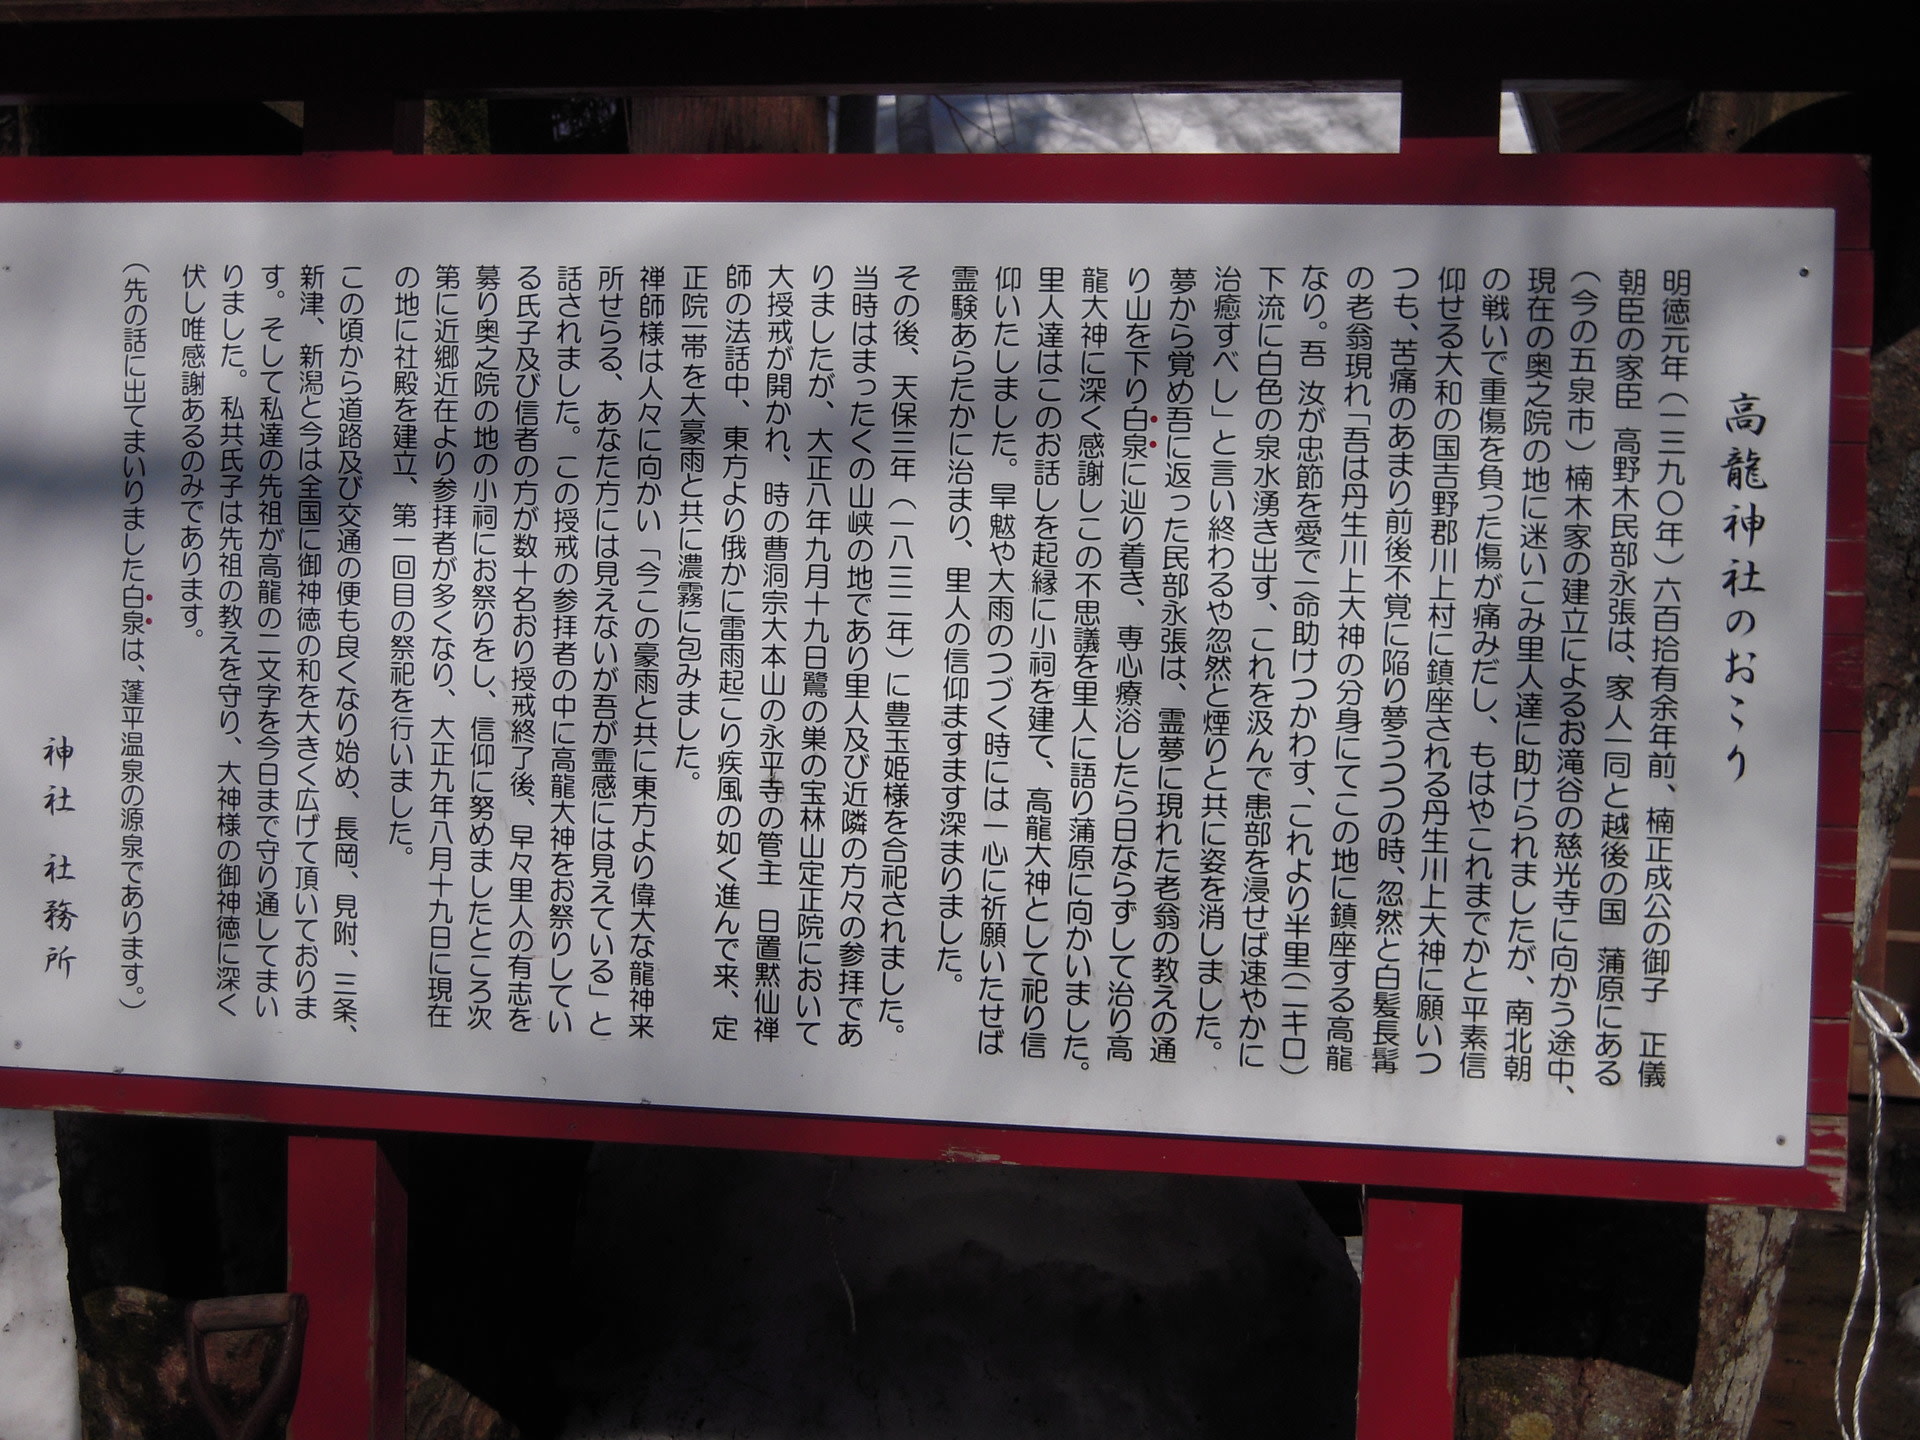 高龍神社のおこり
明徳元年（一三九〇年）六百拾有余年前、楠正成公の御子　正儀
朝臣の家臣　高野木民部永張は、家人一同と越後の国　蒲原にある
（今の五泉市）楠木家の建立によるお滝谷の慈光寺に向かう途中、
現在の奥之院の地に迷いこみ里人達に助けられましたが、南北朝
の戦いで重傷を負った傷が痛みだし、もはやこれまでかと平素信
仰せる大和の国吉野郡川上村に鎮座される丹生川上大神に願いつ
つも、苦痛のあまり前後不覚に陥り夢うつつの時、忽然と白髪長髯
の老翁現れ「吾は丹生川上大神の分身にてこの地に鎮座する高龍
なり。吾　汝が忠節を愛で一命助けつかわす、これより半里（二キロ）
下流に白色の泉水湧き出す、これを汲んで患部を浸せば速やかに
治癒すべし」と言い終わるや忽然と煙りと共に姿を消しました。
夢から覚め吾に返った民部永張は、霊夢に現れた老翁の教えの通
り山を下り白泉に辿り着き、専心療浴したら日ならずして治り高
龍大神に深く感謝しこの不思議を里人に語り蒲原に向かいました。
里人達はこのお話しを起縁に小祠を建て、高龍大神として祀り信
仰いたしました。旱魃や大雨のつづく時には一心に祈願いたせば
霊験あらたかに治まり、里人の信仰ますます深まりました。
その後、天保三年（一八三二年）に豊玉姫様を合祀されました。
当時はまったくの山峡の地であり里人及び近隣の方々の参拝であ
りましたが、大正八年九月十九日鷺の巣の宝林山定正院において
大授戒が開かれ、時の曹洞宗大本山の永平寺の管主　日置黙仙禅
師の法話中、東方より俄かに雷雨起こり疾風の如く進んで来、定
正院一帯を大豪雨と共に濃霧に包みました。
禅師様は人々に向かい「今この豪雨と共に東方より偉大な龍神来
所せらる、あなた方には見えないが吾が霊感には見えている」と
話されました。この授戒の参拝者の中に高龍大神をお祭りしてい
る氏子及び信者の方が数十名おり授戒終了後、早々里人の有志を
募り奥之院の地の小祠にお祭りをし、信仰に努めましたところ次
第に近郷近在より参拝者が多くなり、大正九年八月十九日に現在
の地に社殿を建立、第一回目の祭祀を行いました。
この頃から道路及び交通の便も良くなり始め、長岡、見附、三条、
新津、新潟と今は全国に御神徳の和を大きく広げて頂いておりま
す。そして私達の先祖が高龍の二文字を今日まで守り通してまい
りました。私共氏子は先祖の教えを守り、大神様の御神徳に深く
伏し唯感謝あるのみであります。
（先の話に出てまいりました白泉は、蓬平温泉の源泉であります。）
神社　社務所